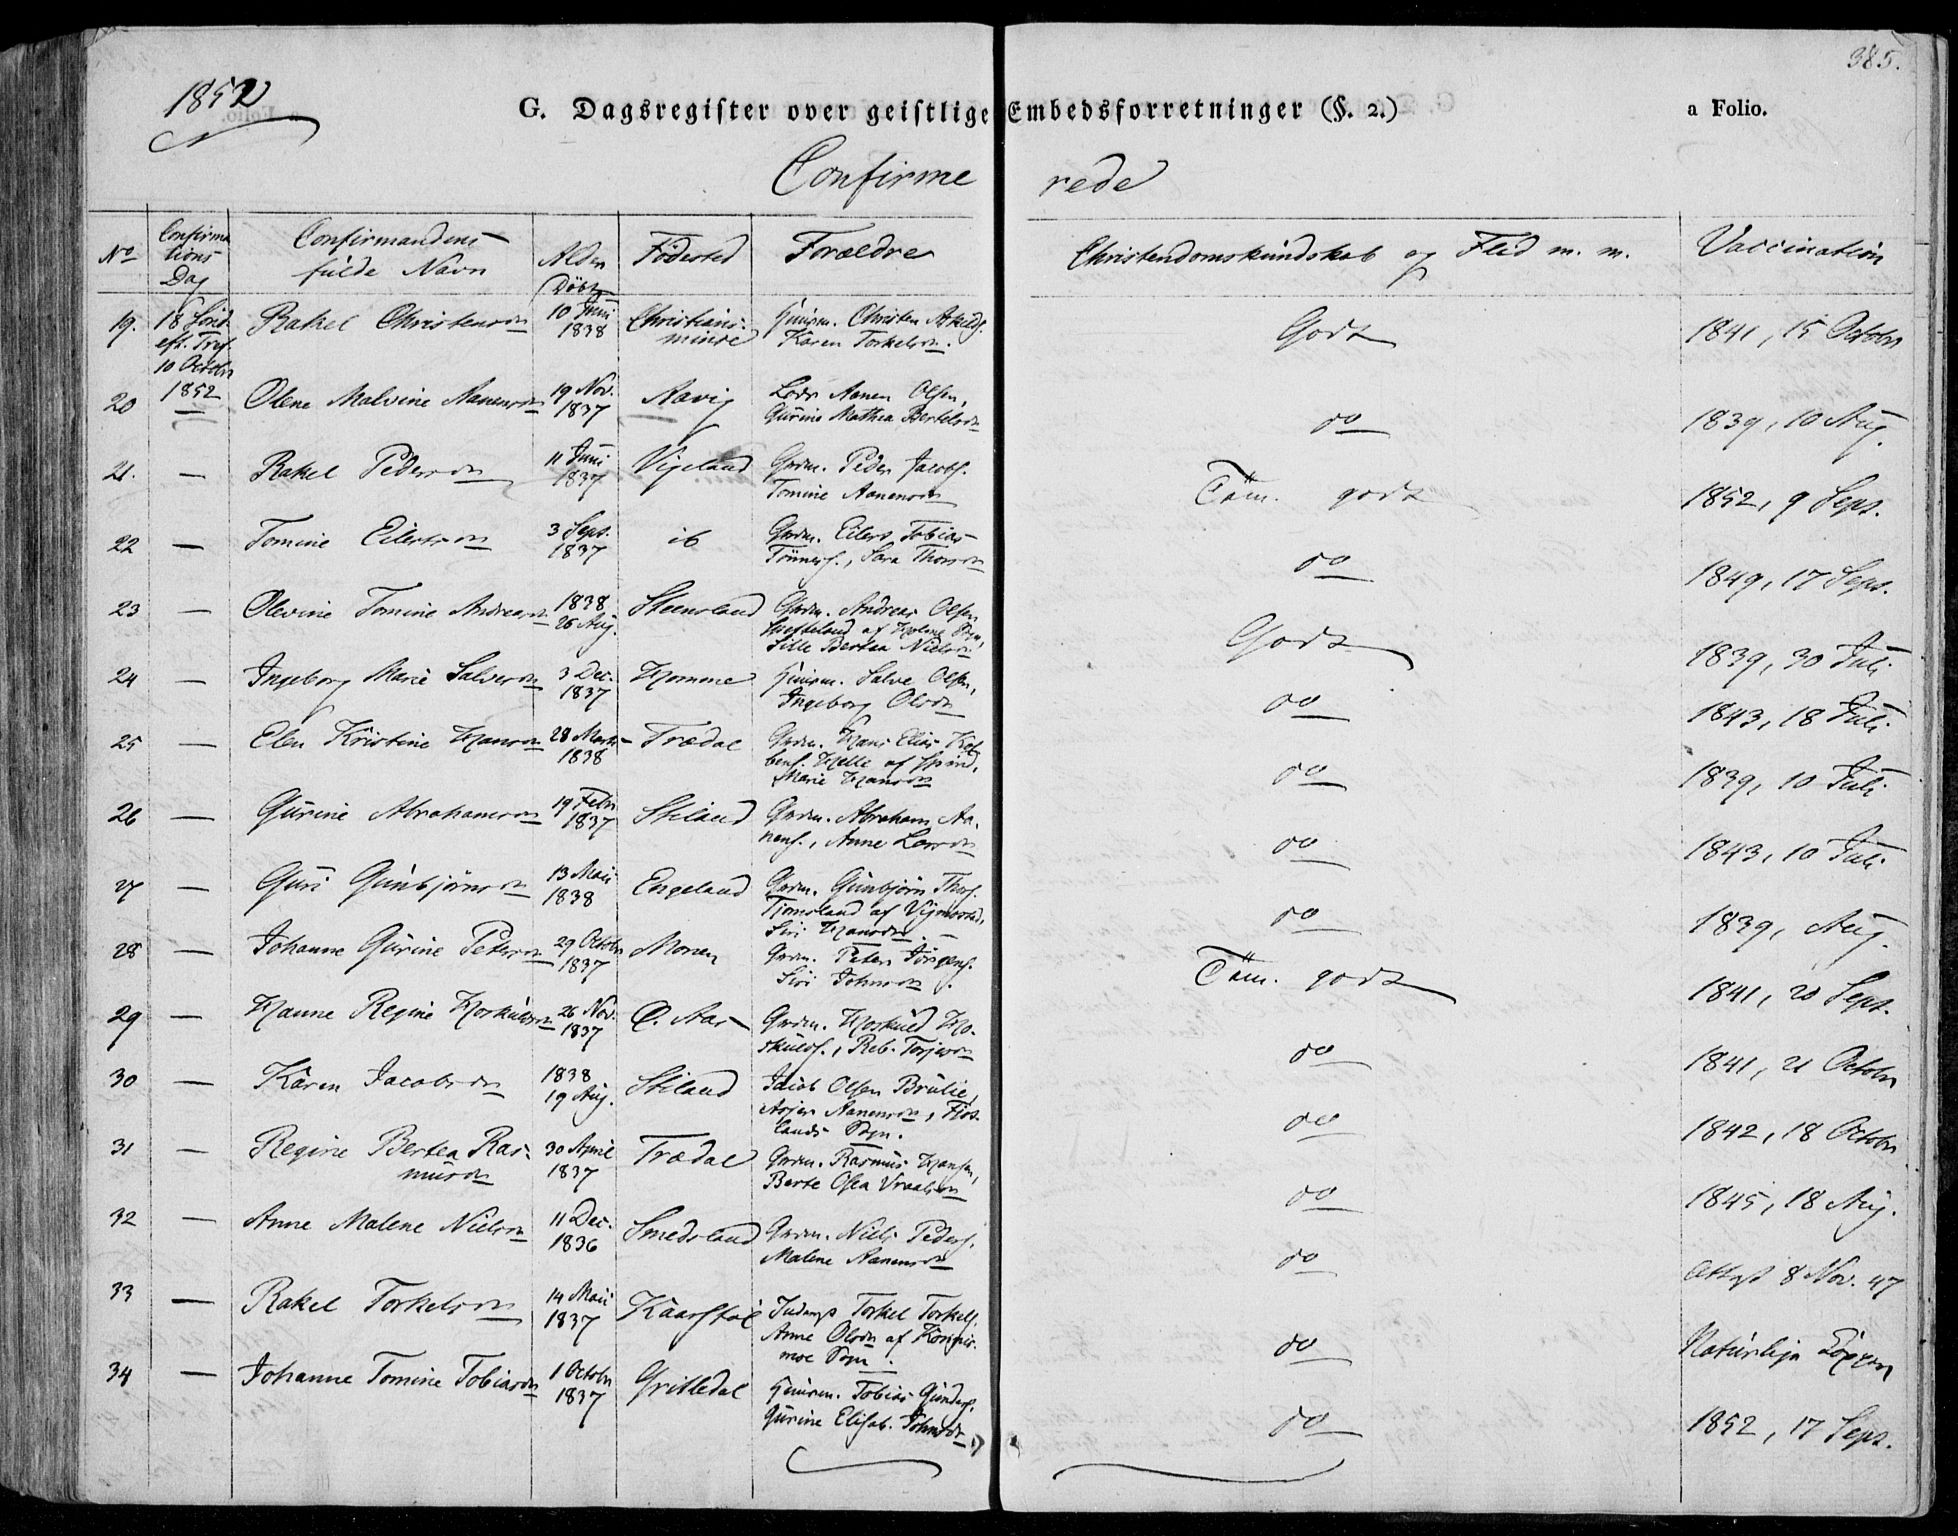 385.
1852
G. Dagsregister over geistlige Embedsforretninger (§. 2.)
a Folio.
Confirmerede
No
Confirmations Dag
Confirmandens fulde Navn
Alder Døbt
Födested
Forældre
Christendomskundskab og Flid m. m.
Vaccination
19. 18 Sönd. eft. Tref. 10 Octobr 1852 Rakel Christensdr 10 Juni 1838 Christiansminde Huusm. Christen Askilds. Karen Torkelsdr. Godt 1841, 15 Octobr
20 Olene Malvine Aanensdr 19 Nov. 1837 Aavig Lods Aanen Olsen, Gurine Mathea Bertelsdr do 1839, 10 Aug.
21. — Rakel Pedersdr 11 Juni 1837 Vigeland Grdm. Peder Jacobs. Tomine Aanensdr Tem. godt 1852, 9 Sept.
22 — Tomine Eilertsdr 3 Sept. 1837 ib Grdm. Eilert Tobias Tönness., Sara Thorsdr do 1849, 17 Sept.
23 — Olevine Tomine Andreasdr 1838 26 Aug. Steensland Grdm. Andreas Olsen af Holme Sgn, Sille Bertea Nielsdr Godt 1839, 30 Juli
24 — Ingeborg Marie Salvesdr 3 Dec. 1837 Homme Huusm. Salve Olsen, Ingeborg Olsdr do 1843, 18 Juli
25 — Elen Kristine Hansdr 28 Marts 1838 Trædal Grdm. Hans Elias Kolbens. Helle af Spind, Marie Hansdr do 1839, 10 Juli
26 — Gurine Abrahamsdr 19 Febr 1837 Skiland Grdm. Abraham Aanens., Anne Larsdr do 1843, 10 Juli
27 — Guri Gunbjörnsdr 13 Mai 1838 Engeland Grdm. Gunbjörn Thors. Tjomsland af Vigmostad, Siri Hansdr. do 1839, Aug.
28 — Johanne Gurine Petersdr 29 Octobr 1837 Monen Grdm. Peter Jörgens. Siri Johnsdr. Tem. godt 1841, 20 Sept.
29 — Hanne Regine Hoskuldsdr 26 Nov. 1837 O. Aas Grdm. Hoskuld Hoskulds., Reb. Torjersdr do 1841, 21 Octobr
30 — Karen Jacobsdr 1838 19 Aug. Skiland Jacob Olsen Brulie, Asjer Aanensdr, Fjotlands Sgn. do 1842, 18 Octobr
31 — Regine Bertea Rasmusdr 30 April 1837 Trædal Grdm. Rasmus Hansen, Berte Olea Vraalsdr do 1845, 18 Aug.
32 — Anne Malene Nielsdr 11 Dec. 1836 Smedsland Grdm. Niels Peders. Malene Aanensdr do Attest 8 Nov. 47
33 — Rakel Torkelsdr 14 Mai 1837 Kaarstöl Inderst Torkel Torkels. Anne Olsdr af Sgn. do Naturlige Kopper
34 — Johanne Tomine Tobiasdr 1 Octobr 1837 Gritledal Huusm. Tobias Gunders. Gurine Elisab. Johnsdr do 1852, 17 Sept.